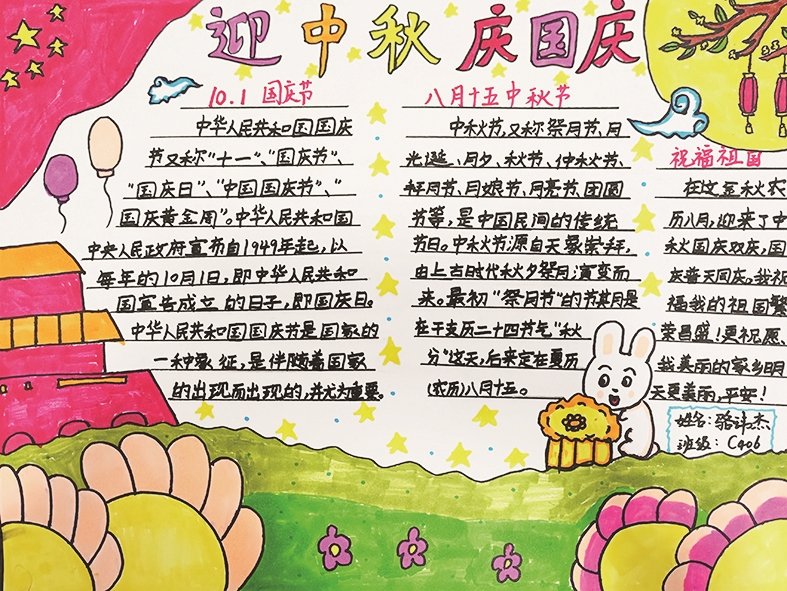 迎中秋 庆国庆
10.1 国庆节
中华人民共和国国庆
节又称"十一"、"国庆节"、
"国庆日"、"中国国庆节"、"
国庆黄金周"。中华人民共和国
中央人民政府宣布自1949年起,以
每年的10月1日,即中华人民共和
国宣告成立的日子,即国庆日。
中华人民共和国国庆节是国家的
一种象征,是伴随着国家
的出现而出现的,并尤为重要。
八月十五中秋节
中秋节,又称祭月节、月
光诞、月夕、秋节、仲秋节、
拜月节、月娘节、月亮节、团圆
节等,是中国民间的传统
节日。中秋节源自天象崇拜,
由上古时代秋夕祭月演变而
来。最初"祭月节"的节期是
在干支历二十四节气"秋
分"这天,后来定在夏历
(农历)八月十五。
祝福祖国
在这金秋农
历八月,迎来了中
秋国庆双庆,国
庆普天同庆。我祝
福我的祖国繁
荣昌盛!更祝愿、
我美丽的家乡明
天更美丽,平安!
姓名:骆 杰
班级:C406